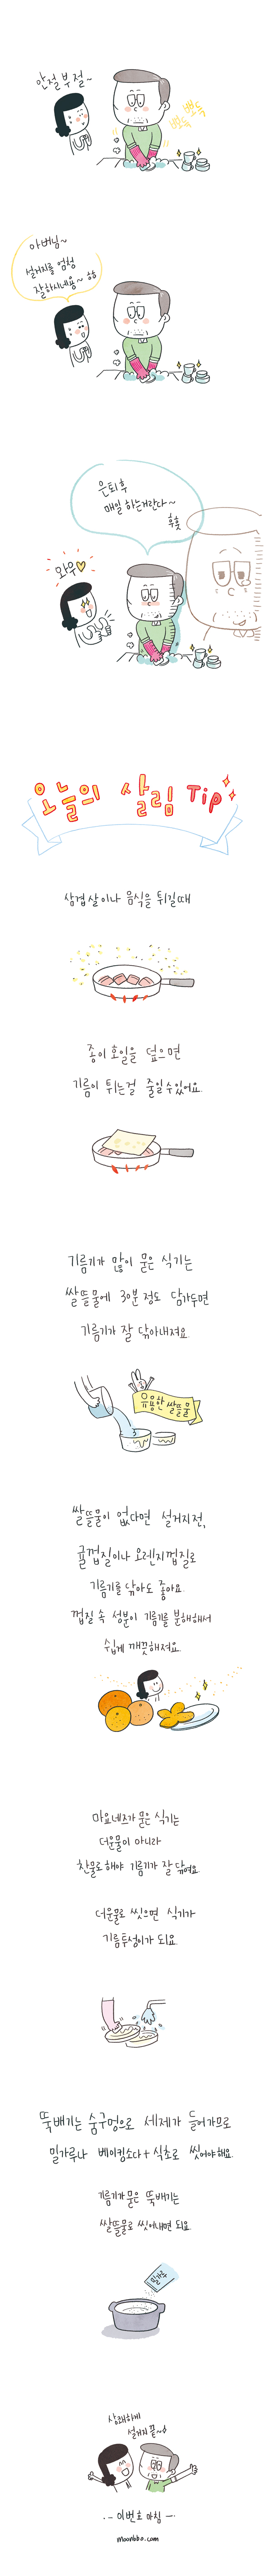 안절부절~
뽀드득
뽀드득
아버님~
설거지를 엄청
잘하시네용~ ㅎㅎ
은퇴 후
매일 하는거란다~
후훗
와우♡
오늘의 살림 Tip
삼겹살이나 음식을 튀길때
종이 호일을 덮으면
기름이 튀는걸 줄일 수 있어요.
기름기가 많이 묻은 식기는
쌀뜰물에 30분 정도 담가두면
기름기가 잘 닦아내져요
유용한 쌀뜰물
쌀뜰물이 없다면 설거지전,
귤껍질이나 오렌지껍질로
기름기를 닦아도 좋아요.
껍질 속 성분이 기름기를 분해해서
쉽게 깨끗해져요.
마요네즈가 묻은 식기는
더운물이 아니라
찬물로 해야 기름기가 잘 닦여요.
더운물로 씻으면 식기가
기름투성이가 되요.
뚝배기는 숨구멍으로 세제가 들어가므로
밀가루나 베이킹소다+식초로 씻어야해요.
기름기가 묻은 뚝배기는
쌀뜰물로 씻어내면 되요.
밀가루
상쾌하게
설거지 끝~♡
·~ 이번호 마침 ―·
moonbbo.com